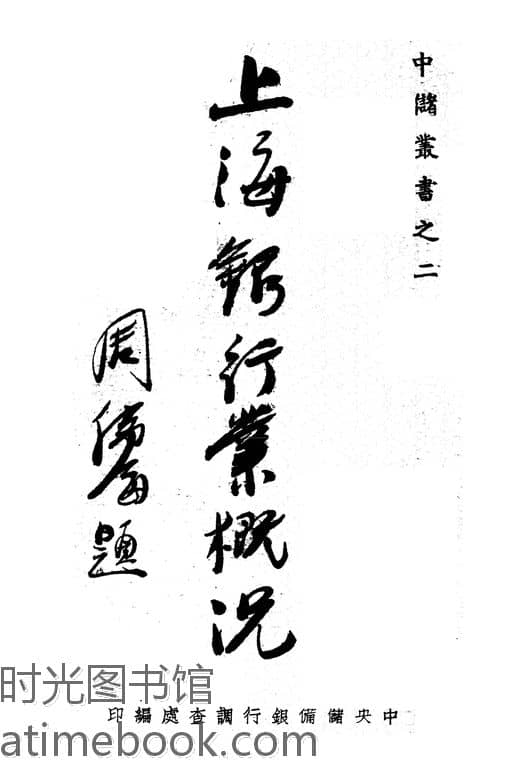 中儲叢書之二
上海銀行業概况
周題
中央儲備銀行調查處編印
时光图书馆
atimebook.com